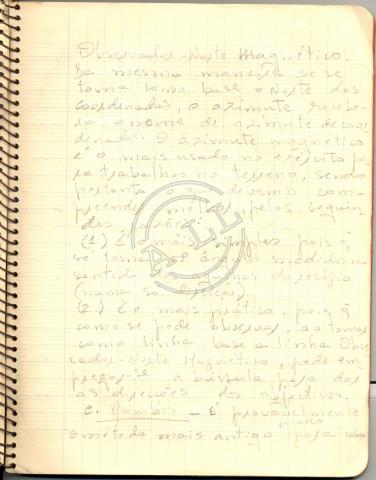 Observador-Norte Magnético.
Da mesma maneira se se
toma como base o Norte das
coordenadas, o azimute recebe-
rá o nome de azimute de coor-
denadas. O azimute magnético
é o mais usado no exército pa-
ra trabalhos no terreno, sendo
portanto o que devemos com-
preender melhor, pelas seguin-
tes razões:
(1) É o mais simples pois q
se toma os ângulos medidos no
sentido dos relógio
(numa só direção)
(2) É a mais prática, pois q
como se pode observar, ao tomar
como linha base a linha Obser-
vador-Norte Magnético, pode em-
pregar-se a bússola para dar
as direções dos objectivos.
c. Remate - É provavelmente
o método mais antigo usado para
ALL